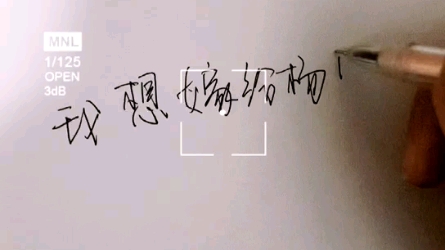 MNL
1/125
OPEN
3dB
我想嫁给杨